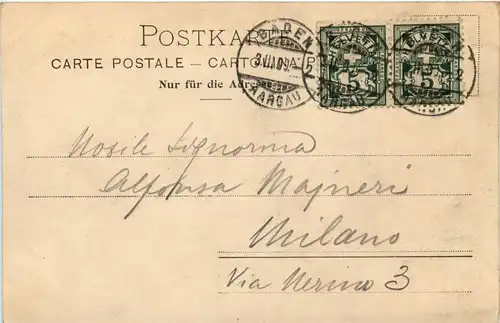 POSTKARTE
CARTE POSTALE — CARTOLINA POSTALE
Nur für die Adresse
BADEN
AARGAU
HELVETIA
5
HELVETIA
5
Nosile Signorina
Alfonsa Majneri
Milano
Via Nerino 3